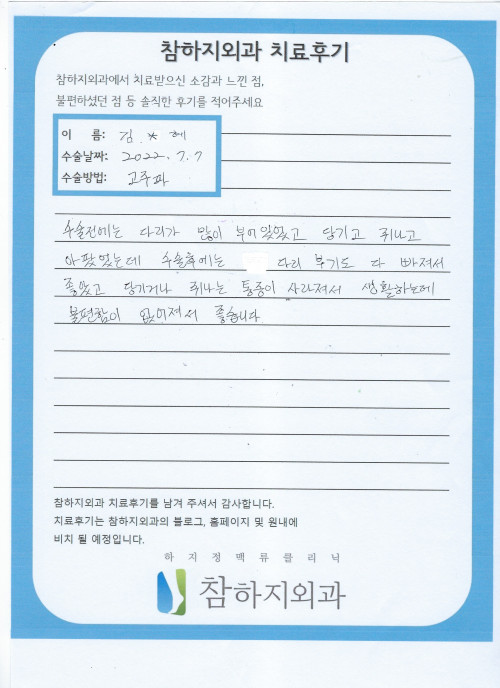 참하지외과 치료후기
참하지외과에서 치료받으신 소감과 느낀 점,
불편하셨던 점 등 솔직한 후기를 적어주세요
이 름: 김 * 혜
수술날짜: 2022. 7. 7
수술방법: 고주파
수술전에는 다리가 많이 부어 있었고 당기고 쥐나고
아팠었는데 수술후에는 다리 부기도 다 빠져서
좋았고 당기거나 쥐나는 통증이 사라져서 생활하는데
불편함이 없어져서 좋습니다
참하지외과 치료후기를 남겨 주셔서 감사합니다.
치료후기는 참하지외과의 블로그, 홈페이지 및 원내에
비치 될 예정입니다.
하지정맥류클리닉
참하지외과